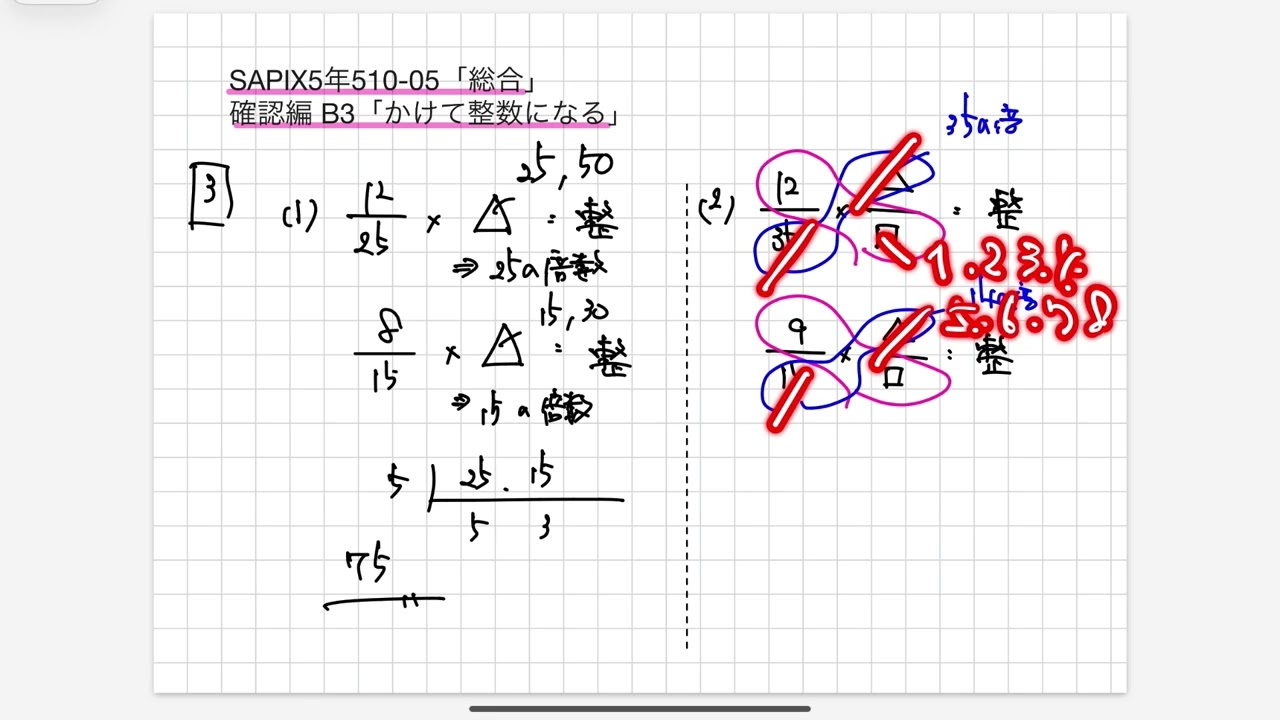 SAPIX5年510-05「総合」
確認編 B3「かけて整数になる」
3
(1) 12/25 × △ = 整
25, 50
⇒ 25の倍数
8/15 × △ = 整
15, 30
⇒ 15の倍数
5 25 . 15
5 3
75
(2) 12/35 × △/□ = 整
35の倍
1.23.
5.6. 8
9 × △/□ = 整